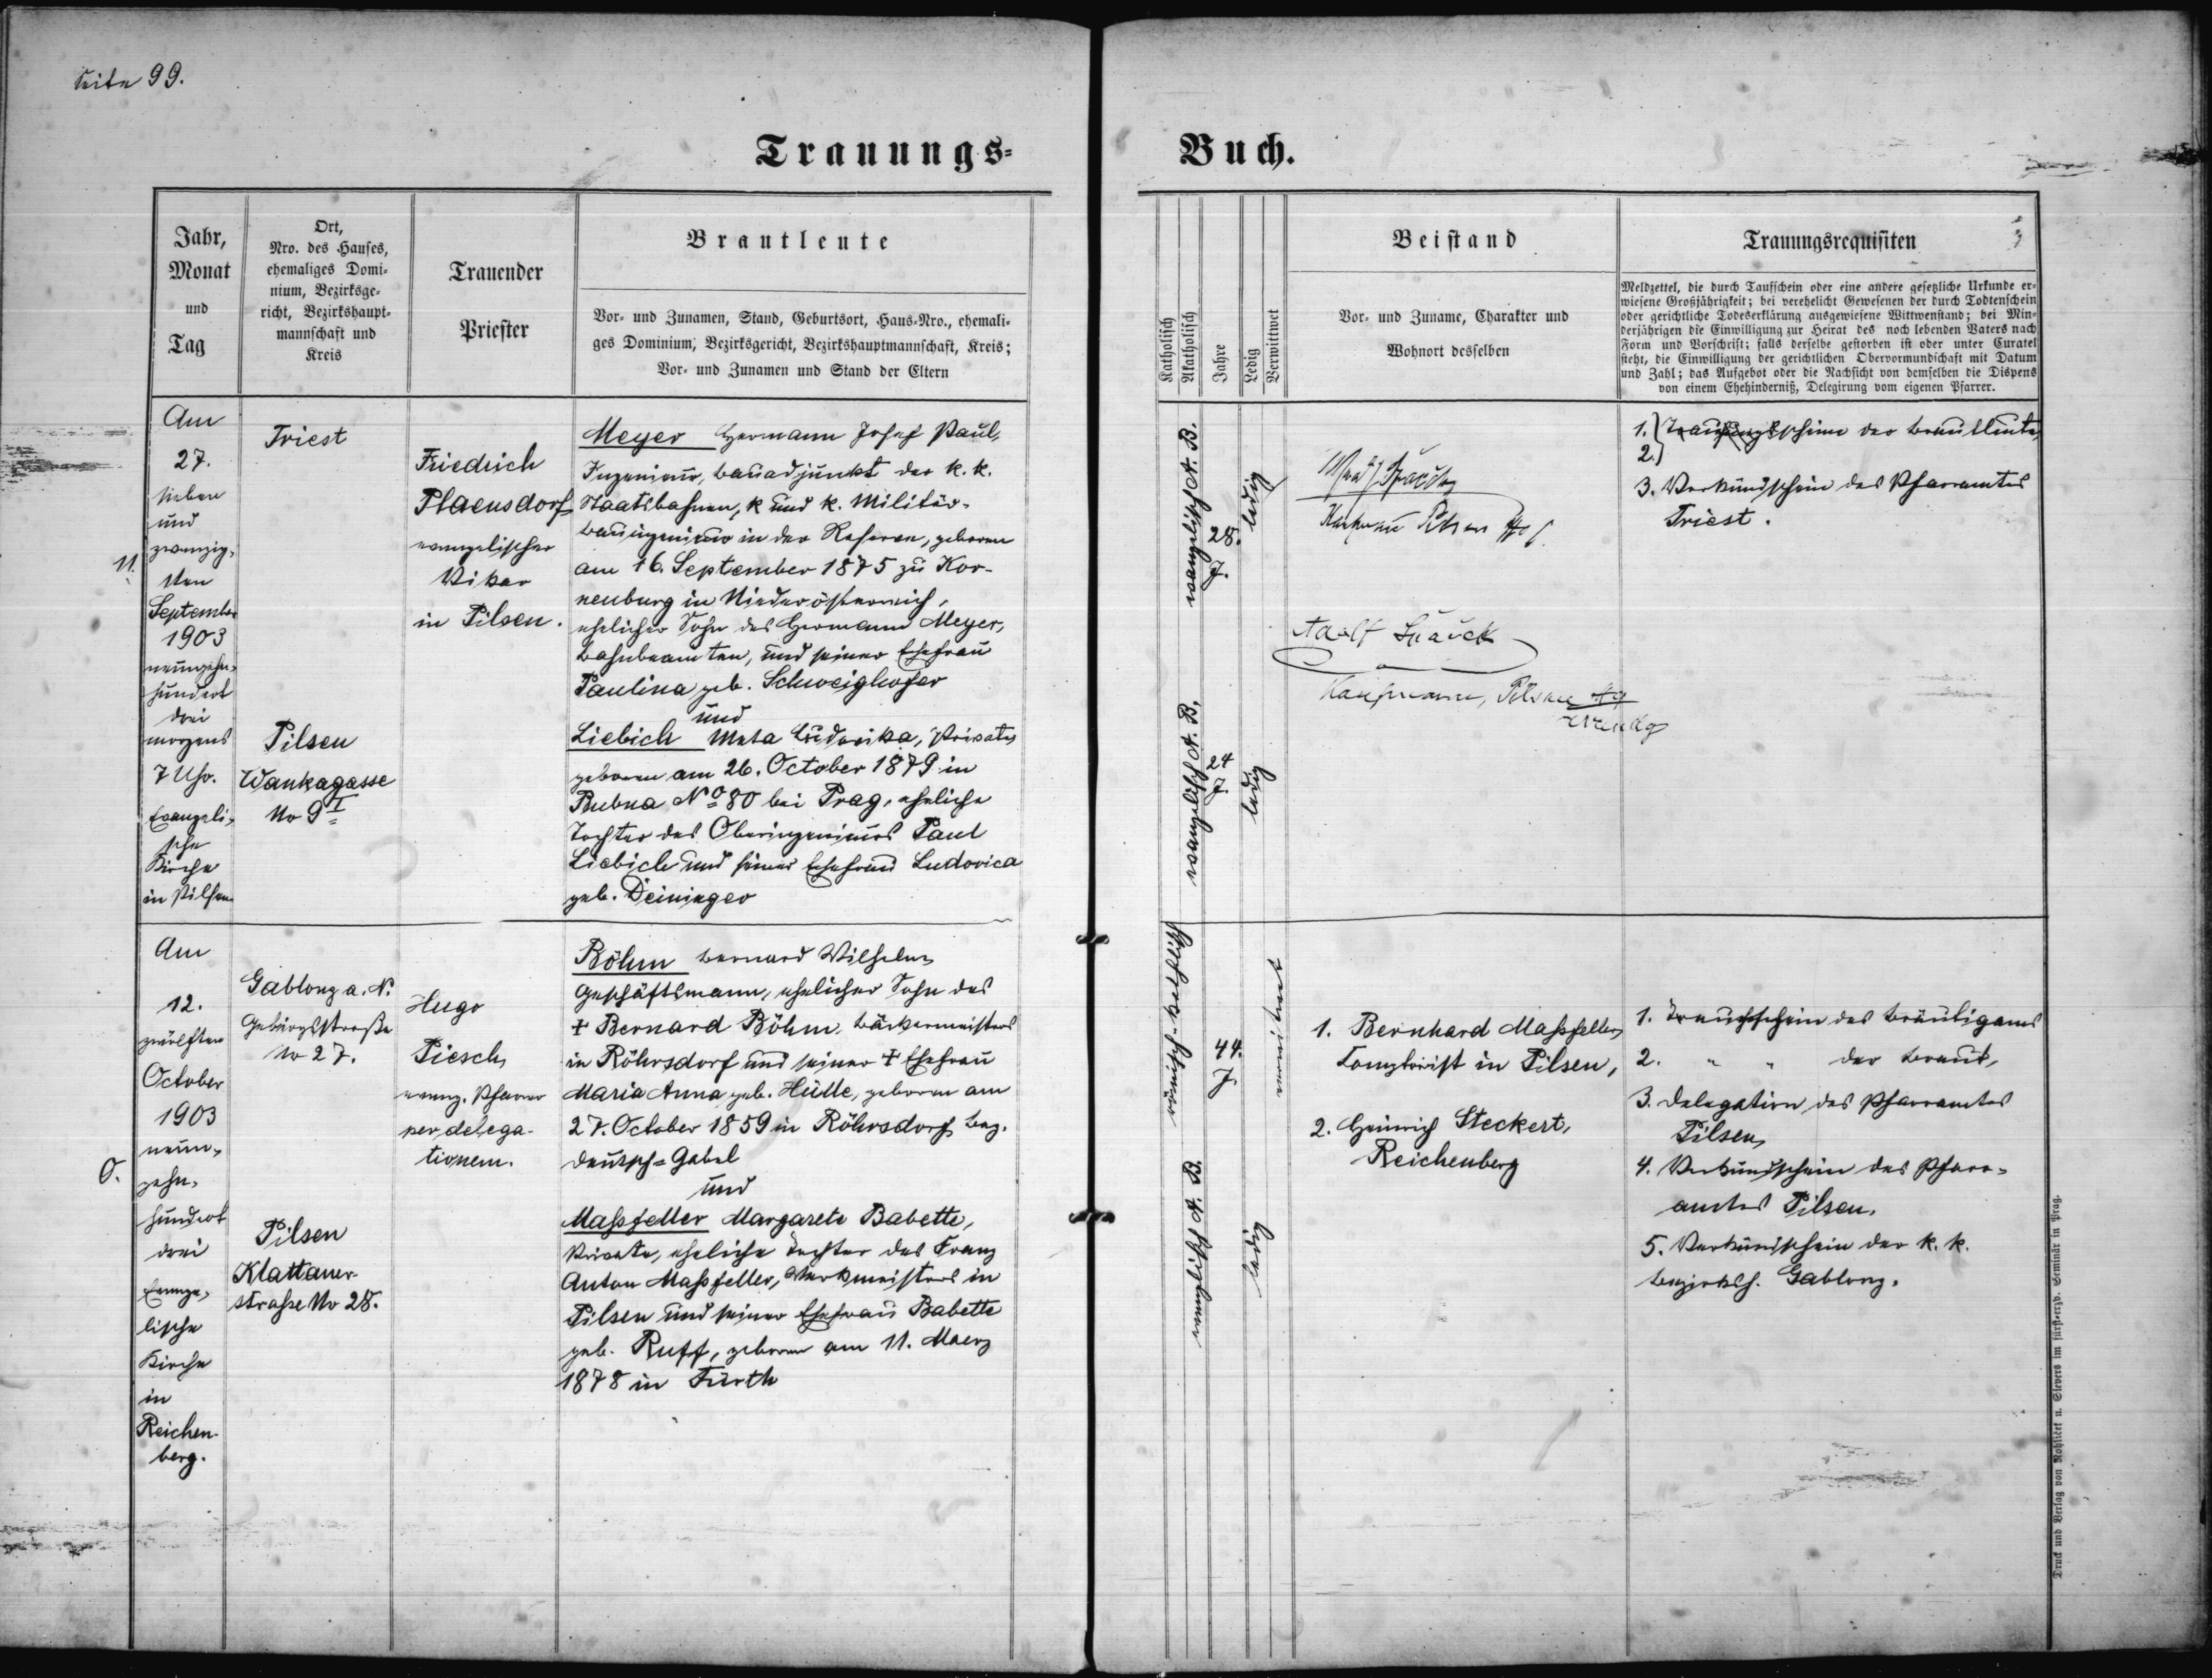 Seite 99.
Trauungs-
Buch.
Jahr,
Monat
und
Tag
Ort,
Nro. des Hauses,
ehemaliges Domi-
nium, Bezirksge-
richt, Bezirkshaupt-
mannschaft und
Kreis
Trauender
Priester
Brautleute
Vor- und Zunamen, Stand, Geburtsort, Haus-Nro., ehemali-
ges Dominium, Bezirksgericht, Bezirkshauptmannschaft, Kreis;
Vor- und Zunamen und Stand der Eltern
Katholisch
Akatholisch
Jahre
Ledig
Verwittwet
Beistand
Vor- und Zuname, Charakter und
Wohnort desselben
Trauungsrequisiten
Meldzettel, die durch Taufschein oder eine andere gesetzliche Urkunde er-
wiesene Großjährigkeit; bei verehelicht Gewesenen der durch Todtenschein
oder gerichtliche Todeserklärung ausgewiesene Wittwenstand; bei Min-
derjährigen die Einwilligung zur Heirat des noch lebenden Vaters nach
Form und Vorschrift; falls derselbe gestorben ist oder unter Curatel
steht, die Einwilligung der gerichtlichen Obervormundschaft mit Datum
und Zahl; das Aufgebot oder die Nachsicht von demselben die Dispens
von einem Ehehinderniß, Delegirung vom eigenen Pfarrer.
11.
Am
27.
sieben
und
zwanzig-
sten
September
1903
neunzehn-
hundert
drei
morgens
7 Uhr.
Evangeli-
sche
Kirche
in Pilsen
Triest
Pilsen
Wankagasse
No 9 I
Friedrich
Plaensdorf
evangelischer
Vikar
in Pilsen.
Meyer Hermann Josef Paul,
Ingenieur, Bauadjunkt der k. k.
Staatsbahnen, k und k. Militär-
bauingenieur in der Reserve, geboren
am 16. September 1875 zu Kor-
neuburg in Niederösterreich,
ehelicher Sohn des Hermann Meyer,
Bahnbeamten, und seiner Ehefrau
Paulina geb. Schweighofer
und
Liebich Meta Ludovika, Private,
geboren am 26. October 1879 in
Bubna No 80 bei Prag, eheliche
Tochter des Oberingenieurs Paul
Liebich und seiner Ehefrau Ludovica
geb. Deininger
evangelisch A. B.
28.
J.
ledig
evangelisch A. B.
24
J.
ledig
Pilsen
Adolf
Kaufmann, Pilsen
1.
2. scheine der Brautleute,
3. Verkündschein des Pfarramtes
Triest.
O.
Am
12.
zwölften
October
1903
neun-
zehn-
hundert
drei
Evange-
lische
Kirche
in
Reichen-
berg.
Gablonz a. N.
Gebirgsstraße
No 27.
Pilsen
Klattauer-
straße No 28.
Hugo
Piesch,
evang. Pfarrer
per delega-
tionem.
Böhm Bernard Wilhelm
Geschäftsmann, ehelicher Sohn des
† Bernard Böhm, Bäckermeisters
in Röhrsdorf und seiner † Ehefrau
Maria Anna geb. Hülle, geboren am
27. October 1859 in Röhrsdorf, Bez.
Deutsch-Gabel
und
Maßfeller Margarete Babette,
Private, eheliche Tochter des Franz
Anton Maßfeller, Werkmeisters in
Pilsen und seiner Ehefrau Babette
geb. Ruff, geboren am 11. Maerz
1878 in Fürth
römisch-katholisch
44.
J.
verwitwet
evanglisch A. B.
ledig
1. Bernhard Maßfeller,
Comptoirist in Pilsen,
2. Heinrich Steckert,
Reichenberg
1. Taufschein des Bräutigams
2. " " der Braut,
3. Delegation des Pfarramtes
Pilsen,
4. Verkündschein des Pfarr-
amtes Pilsen.
5. Verkündschein der k. k.
Bezirksh. Gablonz.
Druck und Verlag von Rohlicek u. Sievers im fürst-erzb. Seminär in Prag.